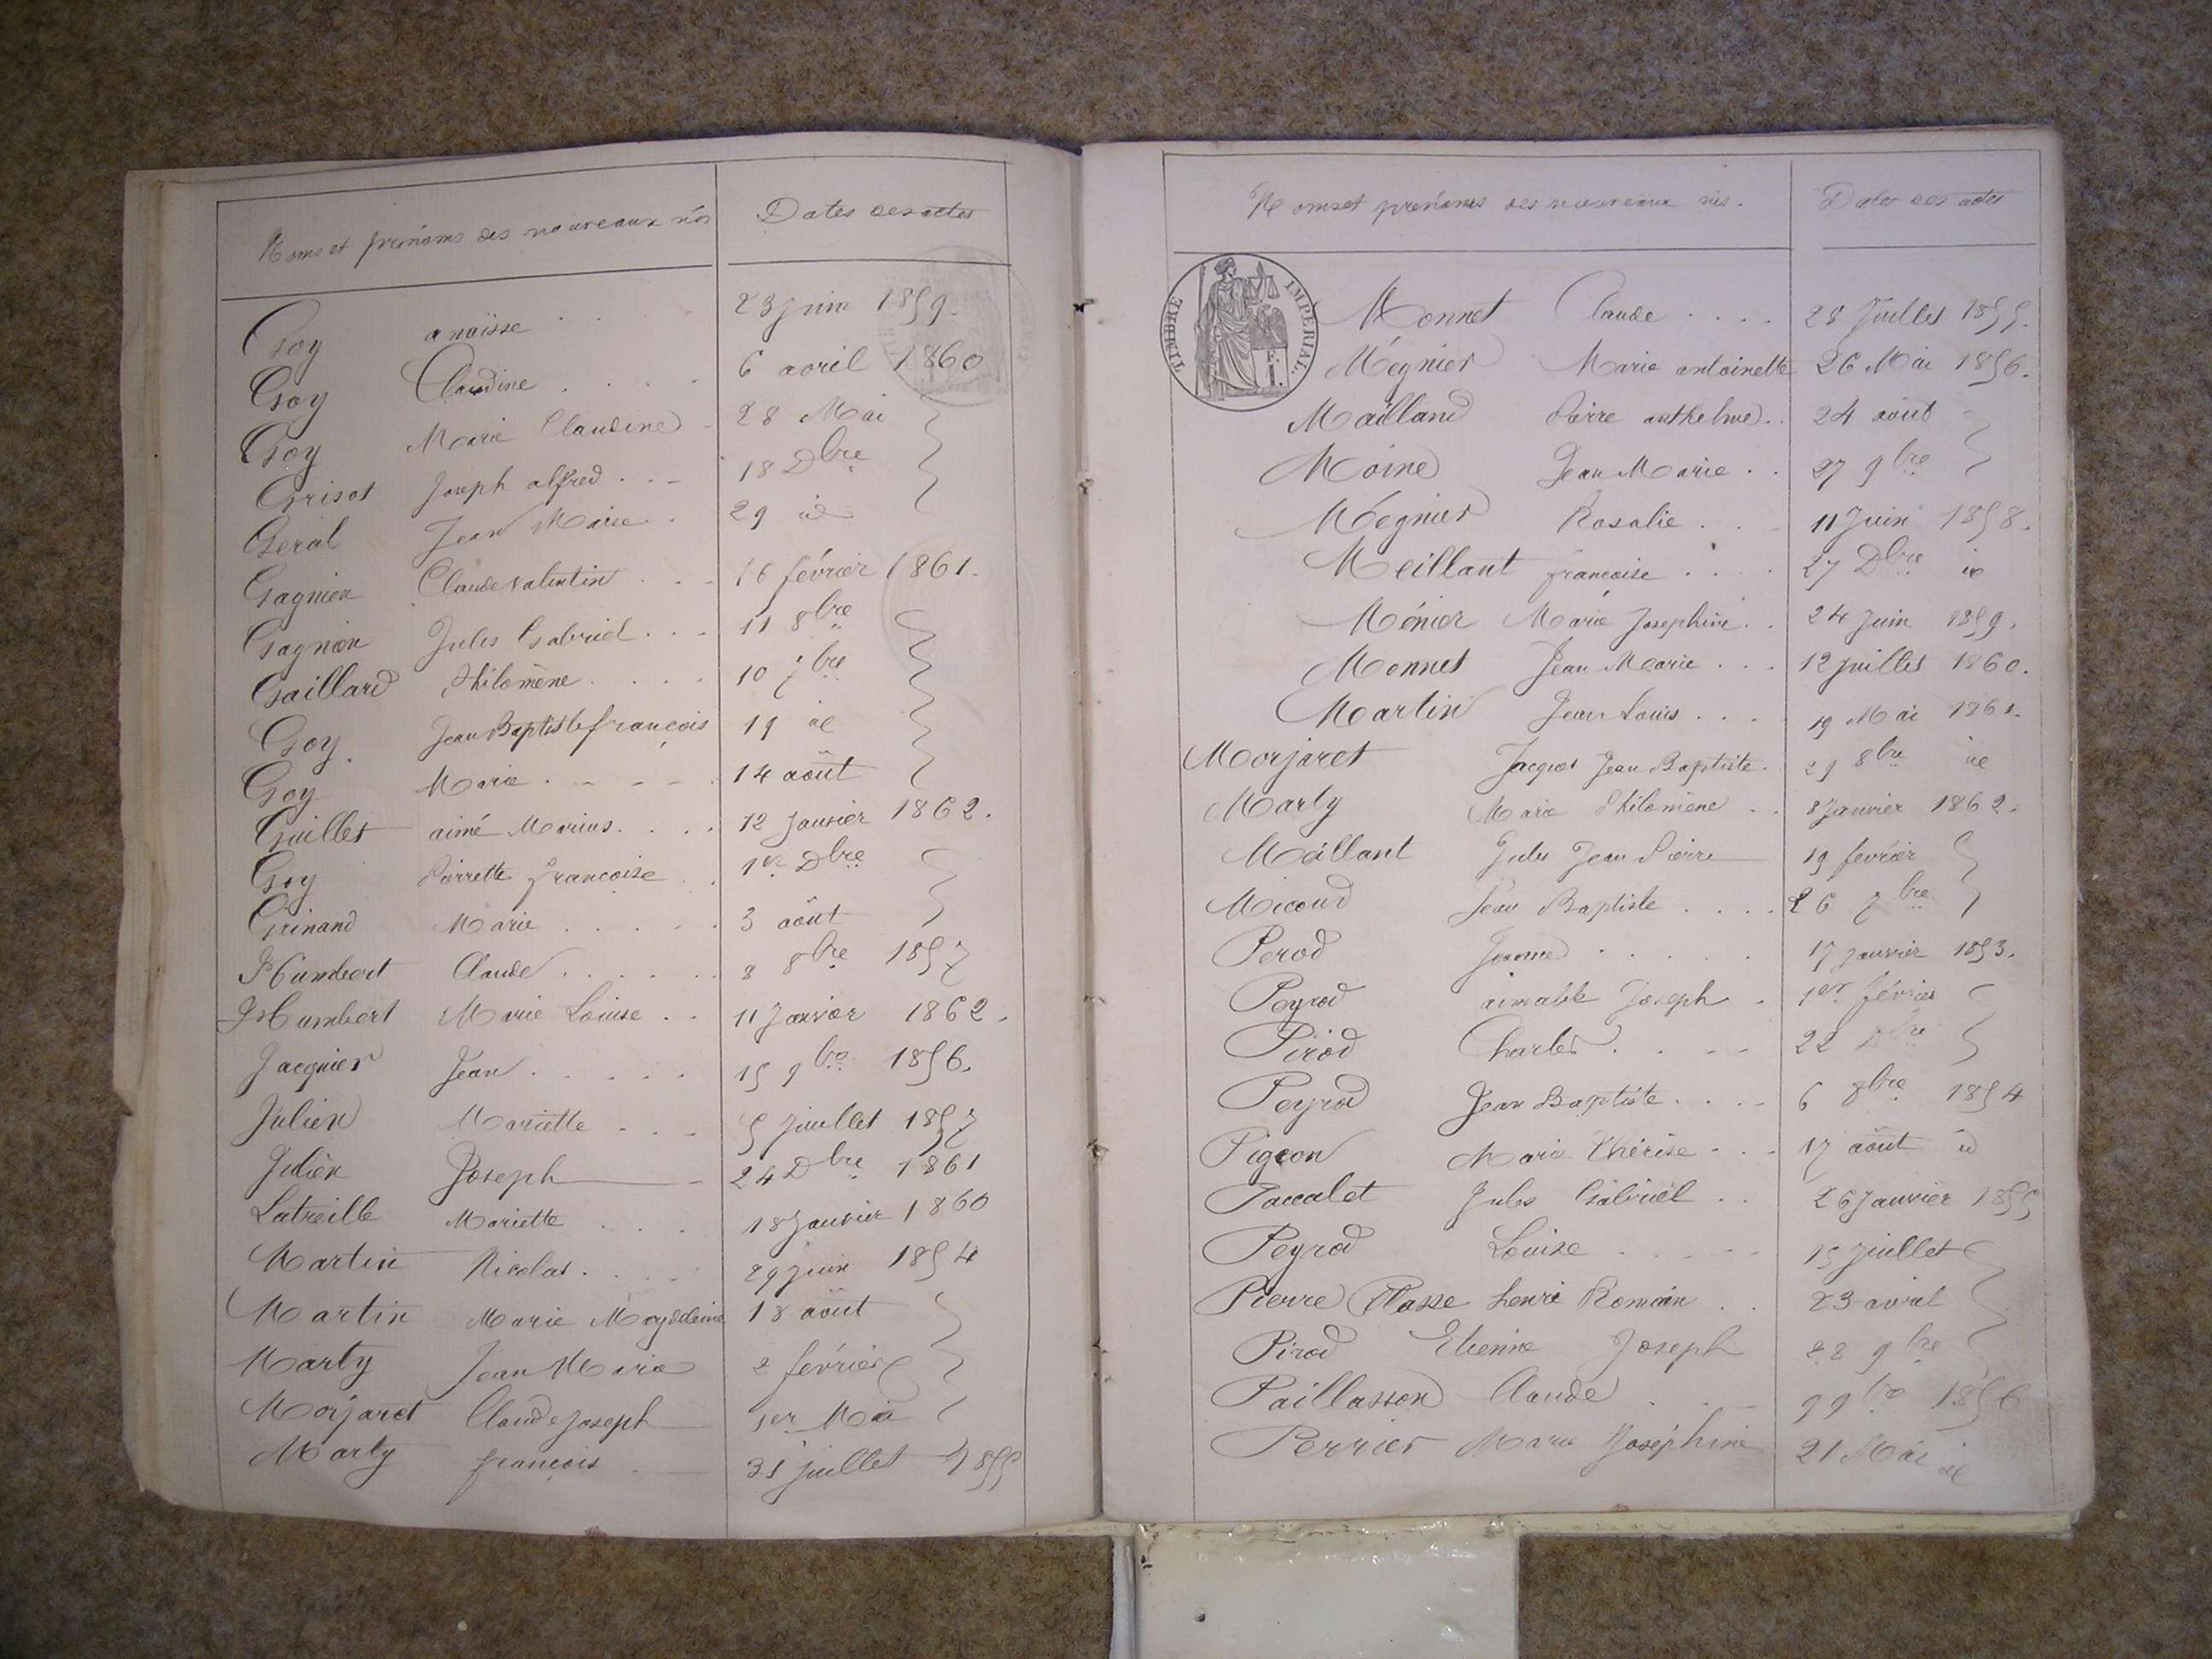 Noms et prénoms des nouveaux nés Dates des actes
Goy anaïsse 23 juin 1859.
Goy Claudine 6 avril 1860
Goy Marie Claudine 28 Mai
Grisot Joseph alfred 18 Dbre
Geral Jean Marie 29 id
Gagnien Claude valentin 16 février 1861.
Gagnion Jules Gabriel 11 8bre
Gaillard Philomène 10 7bre
Goy Jean Baptiste françois 19 id
Goy Marie 14 août
Guillet aimé Marius 12 Janvier 1862.
Goy Pierrette françoise 1er Dbre
Grinand Marie 3 août
Humbert Claude 8 8bre 1857
Humbert Marie Louise 11 Janvier 1862.
Jacquier Jean 15 9bre 1856.
Julien Mariette 5 Juillet 1857
Julien Joseph 24 Dbre 1861
Latreille Mariette 18 Janvier 1860
Martin Nicolas 29 juin 1854
Martin Marie Magdeleine 18 août
Marty Jean Marie 2 février
Morjaret Claude Joseph 1er Mai
Marty françois 31 juillet 1855
Noms et prénoms des nouveaux nés. Dates des actes
TIMBRE IMPERIAL.
Monnet Claude 28 Juillet 1855.
Mégnier Marie antoinette 26 Mai 1856.
Mailland Pierre anthelme 24 août
Moine Jean Marie 27 9bre
Mégnier Rosalie 11 Juin 1858.
Meillant françoise 27 Dbre id
Ménier Marie Josephine 24 Juin 1859.
Monnet Jean Marie 12 juillet 1860.
Martin Jean Louis 19 Mai 1861.
Morjaret Jacques Jean Baptiste 29 8bre id
Marty Marie Philomène 8 Janvier 1862.
Maillant Jules Jean Pierre 19 février
Micoud Jean Baptiste 26 7bre
Perod 17 janvier 1853.
Peyrod aimable Joseph 1er février
Pirod Charles 22
Peyrod Jean Baptiste 6 8bre 1854
Pigeon Marie Thérèse 17 août id
Paccalet Jules Gabriel 26 Janvier 1855
Peyrod Louise 15 Juillet
Pierre Classe henri Romain 23 avril
Pirod Etienne Joseph 28 9bre
Paillasson Claude 9 9bre 1856
Perrier Marie Joséphine 21 Mai id